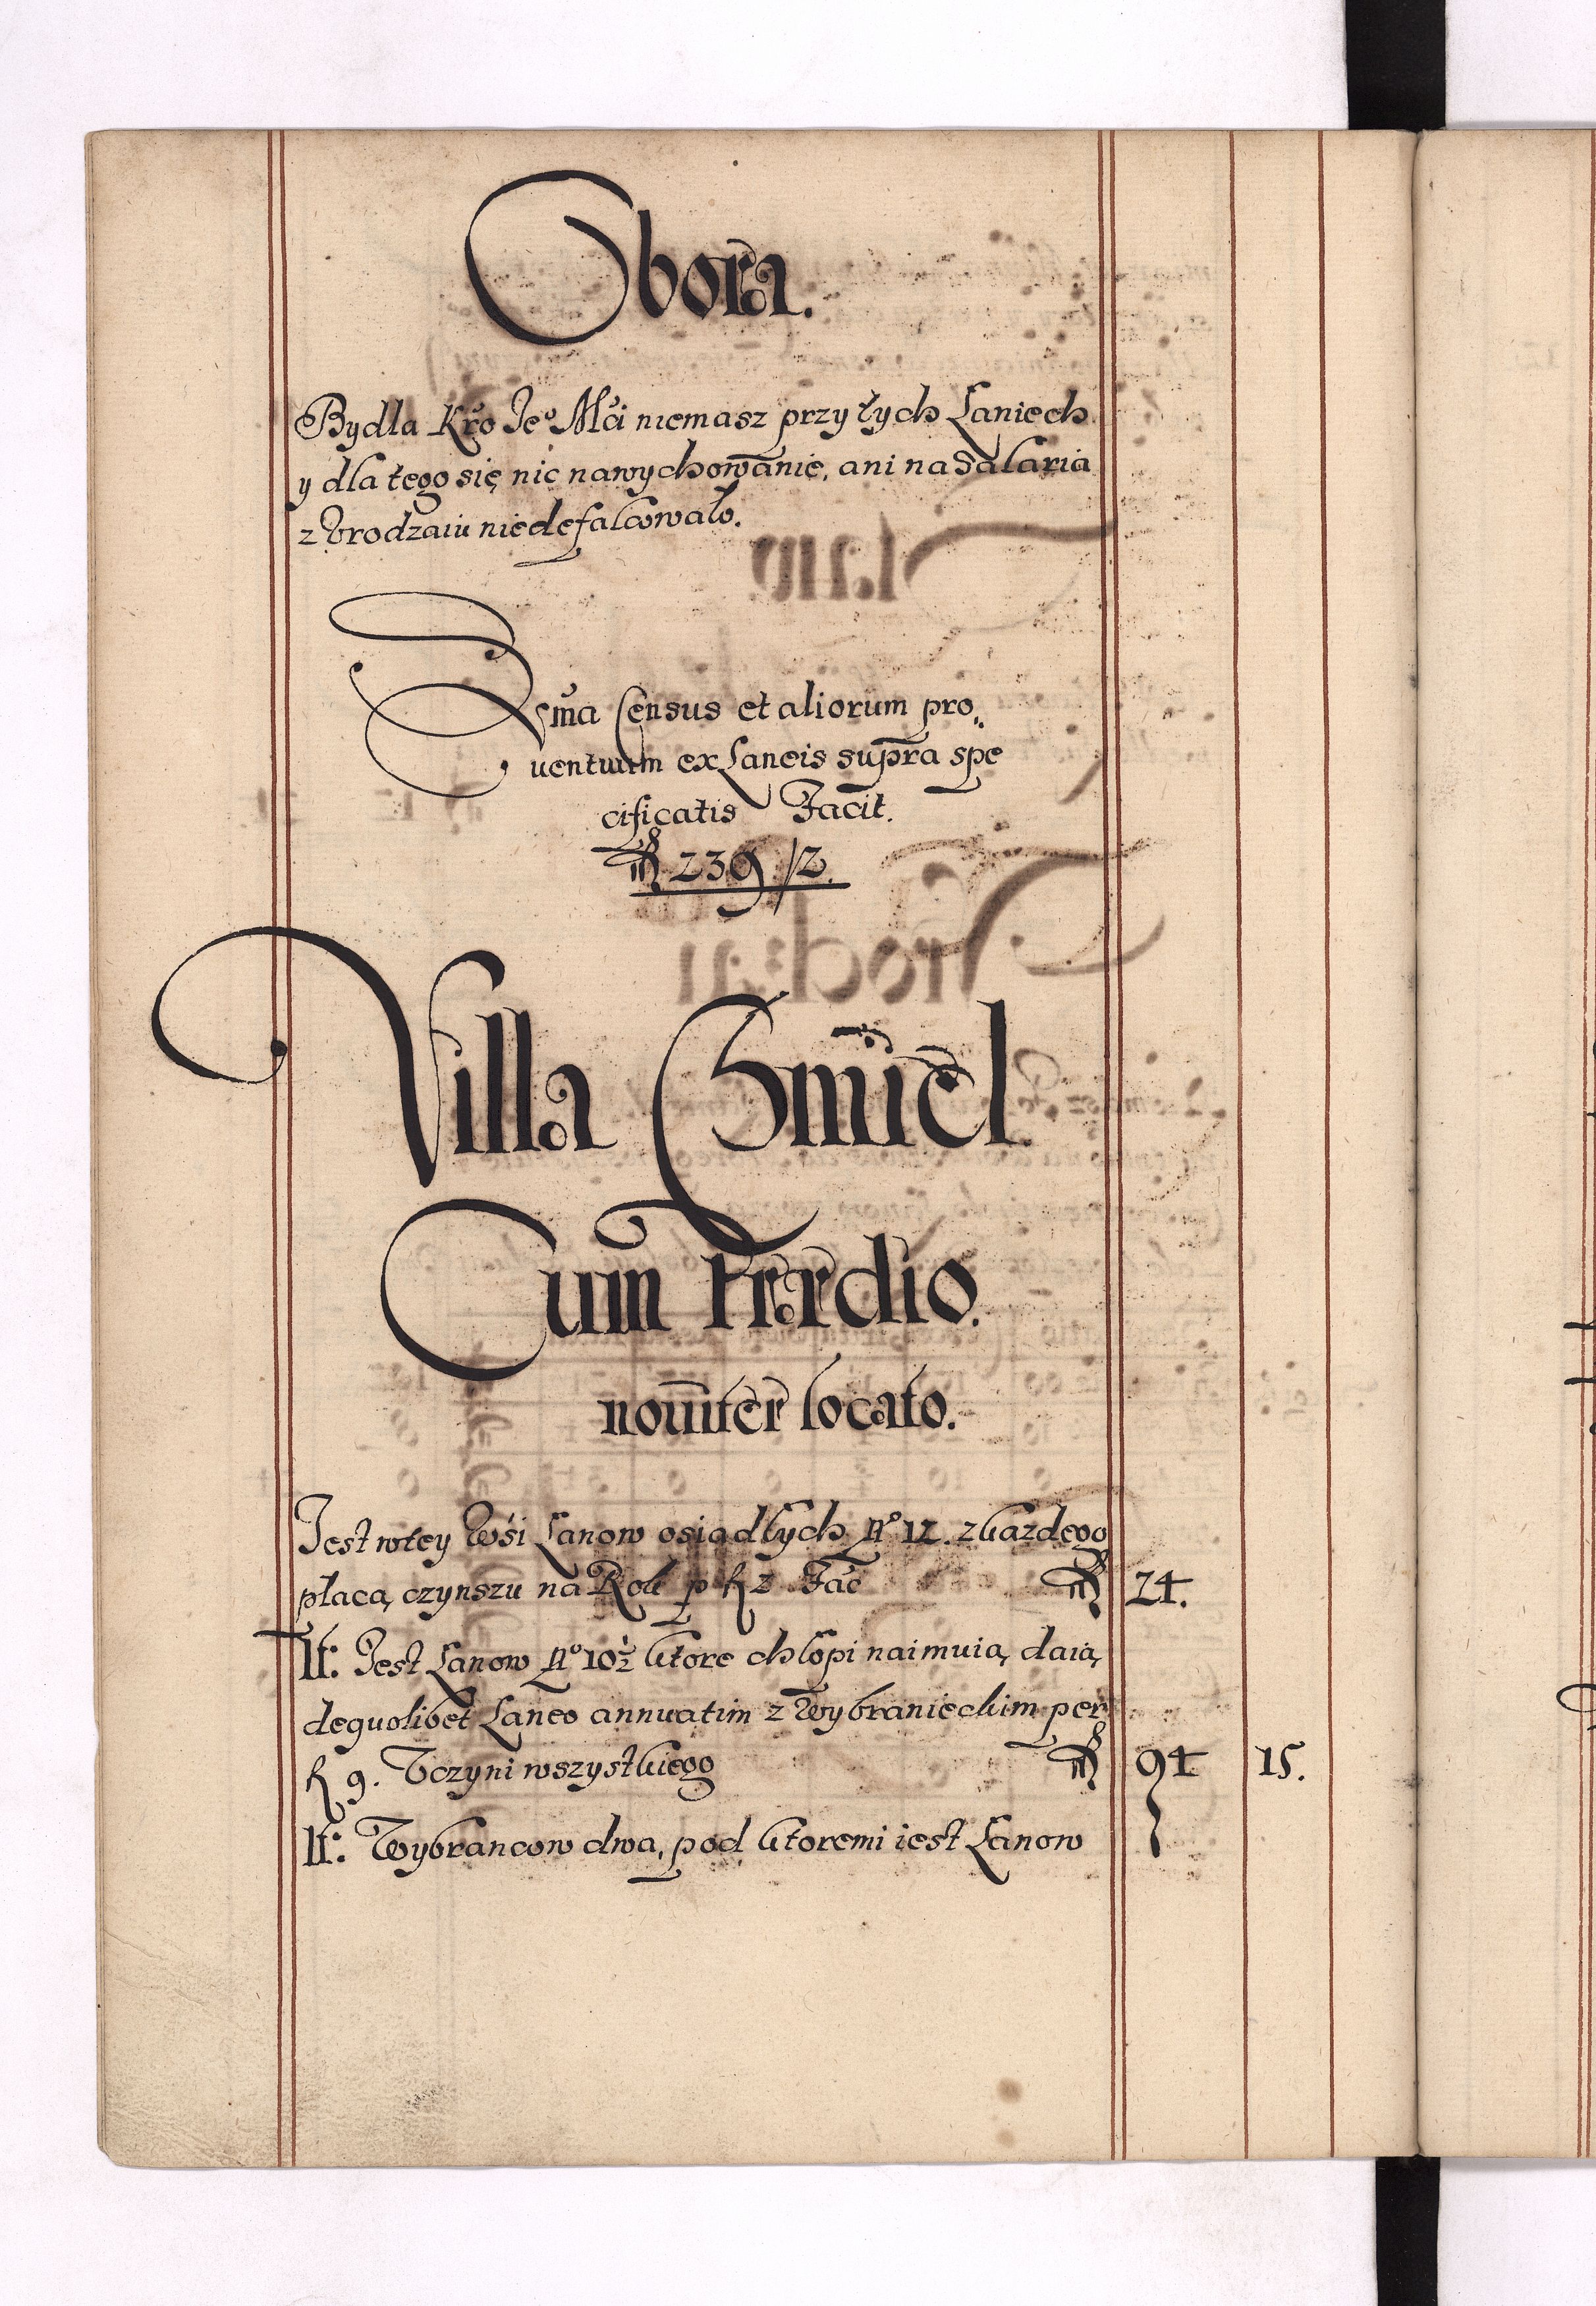 Obora.
Bydla Kro Je° Mći niemasz przy tych Laniech
y dla tego się nic nawychowanie, ani na Salaria
z Vrodzaiu niedefalcowało.
Suma Census et aliorum pro„
uentuum ex Laneis supra spe
cificatis Facit.
239 /2.
Villa Gmiel
Cum Praedio.
nouiter locato.
Jest wtey Wśi Lanow osiadłych N° 12. z kazdego
płacą czynszu na Rok p f 2 Fac 24.
It: Jest Lanow N° 10½ ktore chłopi naimuią, daią,
dequolibet Laneo annuatim z Wybranieckim per
f 9. Vczyni wszystkiego 94 15.
It: Wybrancow dwa, pod ktoremi iest Lanow